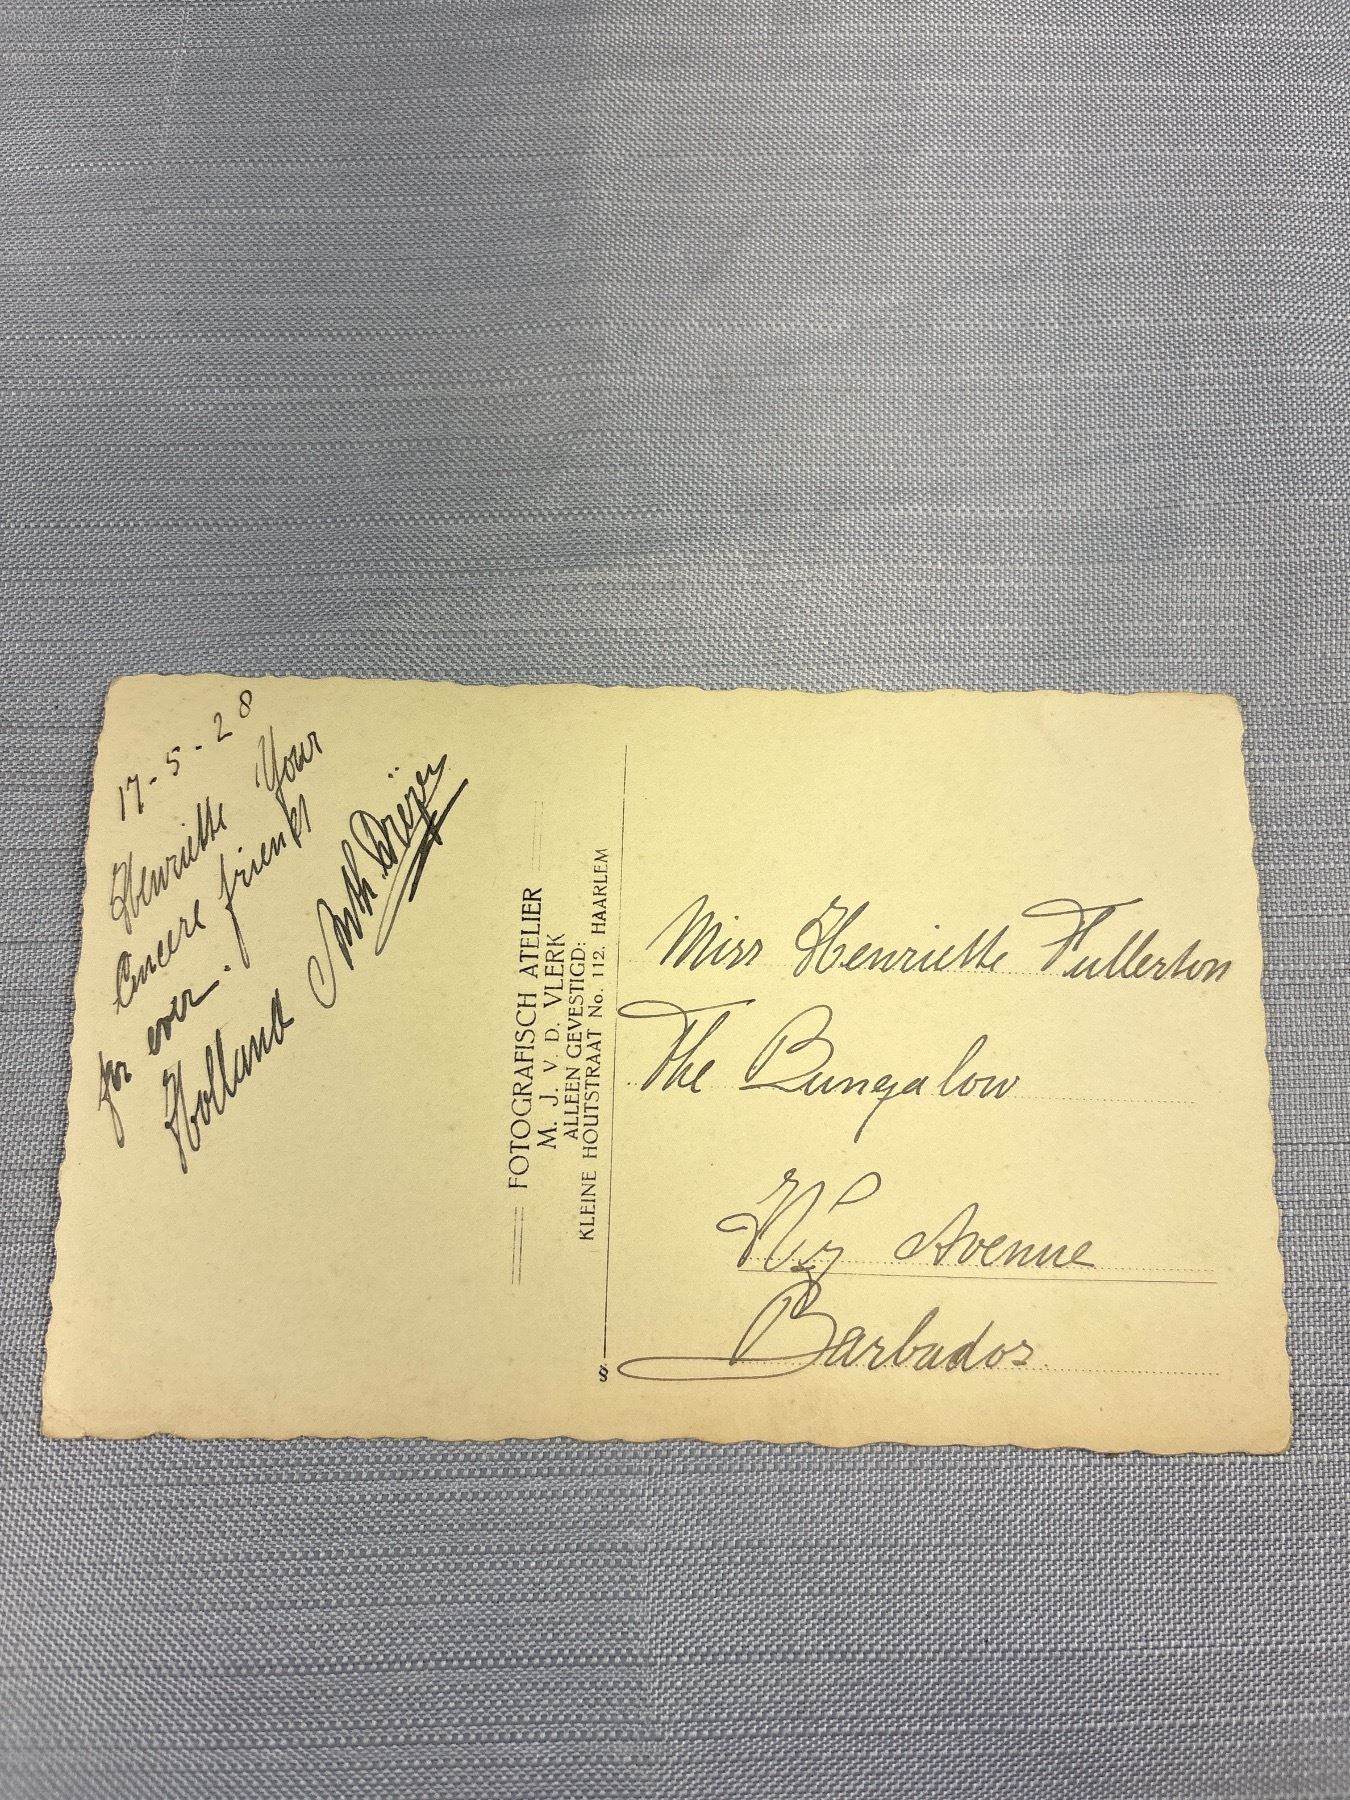 17-5-28
Henriette Your
Sincere friend
for ever.
Holland Anth.
FOTOGRAFISCH ATELIER
M. J. V. D. VLERK
ALLEEN GEVESTIGD:
KLEINE HOUTSTRAAT No. 112. HAARLEM
§
Miss Henriette Fullerton
The Bungalow
Avenue
Barbados.